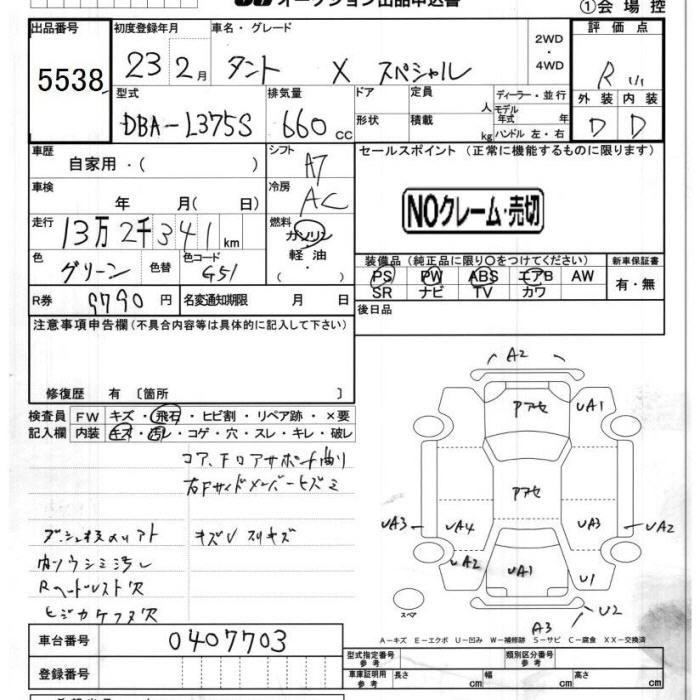 オークション出品申込書
①会場控
出品番号 初度登録年月 車名・グレード 評価点
5538 23 2月 タント X スペシャル 2WD ・ 4WD R
型式 排気量 ドア 定員 ディーラー・並行 外装 内装
DBA-L375S 660 cc 形状 積載 人 kg モデル年式 年 ハンドル 左・右 D D
車歴 シフト セールスポイント (正常に機能するものに限ります)
自家用・( ) A7
車検 冷房
年 月( 日) AC NOクレーム・売切
走行 燃料
13万2千341km ガソリン
軽油
・( )
色 色替 色コード 装備品 (純正品に限り○をつけてください) 新車保証書
グリーン G51 PS PW ABS エアB AW 有・無
SR ナビ TV カワ
R券 9790円 名変通知期限 月 日 後日品
注意事項申告欄(不具合内容等は具体的に記入して下さい)
修復歴 有 〔箇所 〕
検査員 FW キズ・飛石・ヒビ割・リペア跡・×要
記入欄 内装 キズ・汚レ・コゲ・穴・スレ・キレ・破レ
コア、Fロアサポート曲り
右Fサイドメンバーヒズミ
キズU スリキズ
内ソウシミ汚レ
Rヘッドレスト欠
A2
Pアセ UA1
Pアセ
UA3 UA4 UA3 UA2
UA2 UA1 U1
スペア U2
A3
A-キズ E-エクボ U-凹み W-補修跡 S-サビ C-腐食 XX-交換済
車台番号 0407703
登録番号
型式指定番号 参考 類別区分番号 参考
車庫証明用 参考 長さ cm 幅 cm 高さ cm